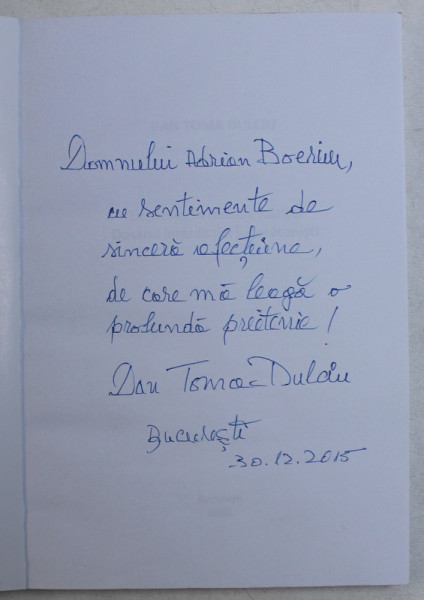 Domnului Adrian Boeriu,
cu sentimente de
sinceră afecțiune,
de care mă leagă o
profundă prietenie!
Dan Toma-Dulciu
București
30.12.2015